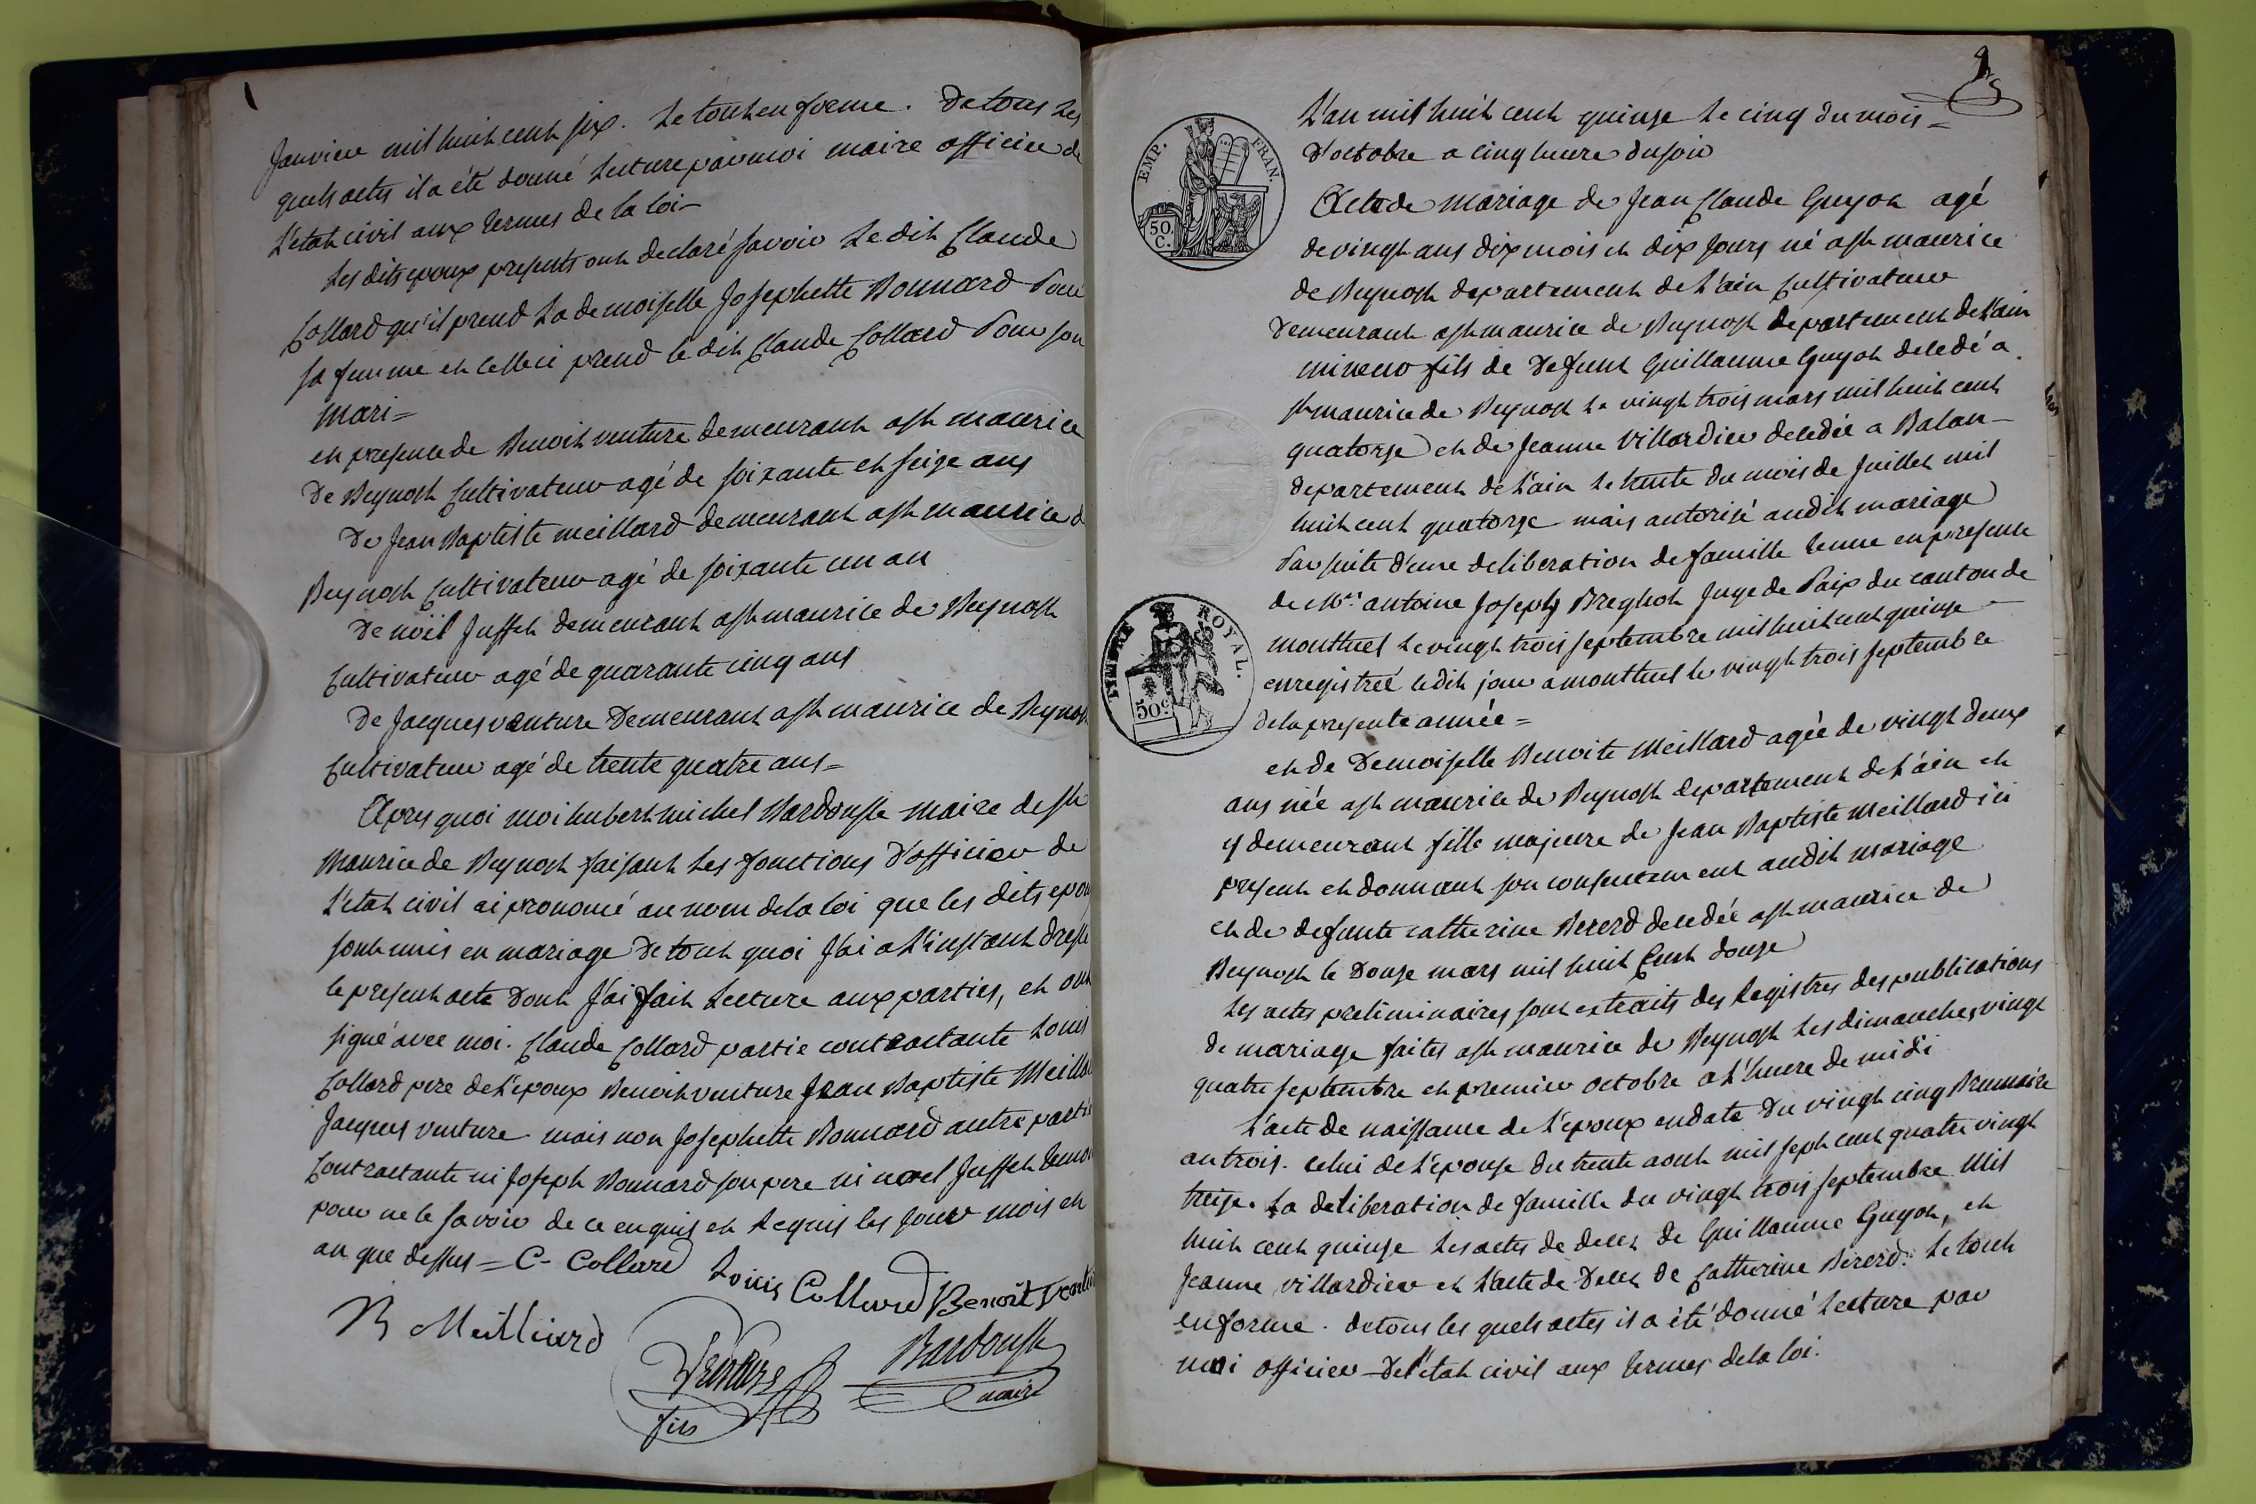 Janvier mil huit cent six. Le tout en forme. De tous les
quels actes il a été donné lecture par moi maire officier de
L'état civil aux termes de la loi-
Les dits epoux presents ont declaré savoir Le dit Claude
Collard qu'il prend La demoiselle Josephette Bonnard Pour
sa femme et celleci prend le dit Claude Collard Pour son
mari=
en presence de Benoit venture demeurant a st maurice
De Beynost Cultivateur agé de soixante et seize ans
De Jean Baptiste meillard demeurant a st maurice d
Beynost Cultivateur agé de soixante un an
De noël Juffet demeurant a st maurice de Beynost
Cultivateur agé de quarante cinq ans
De Jacques venture Demeurant a st maurice de Beynost
Cultivateur agé de trente quatre ans=
Apres quoi moi hubert michel Bardousse maire de st
Maurice de Beynost faisant Les fonctions D'officier de
L'etat civil ai prononcé au nom de la loi que les dits epou
sont unis en mariage De tout quoi J'ai a L'instant dressé
le present acte Dont J'ai fait Lecture aux parties, et ont
signé avec moi. Claude Collard partie contractante Louis
Collard pere de L'epoux Benoit venture Jean Baptiste Meilla
Jacques venture mais non Josephette Bonnard autre partie
Contractante ni Joseph Bonnard son pere ni noel Juffet temoi
pour ne le savoir de ce enquis et Requis les Jour mois et
an que dessus = C- Collard
Louis Collard Benoît Ventu
B Meilliard
Venture Bardousse
fils maire
L'an mil huit cent quinze Le cinq du mois=
D'octobre a cinq heure du soir
EMP. FRAN.
Acte de Mariage de Jean Claude Guyot agé
de vingt ans dix mois et dix Jours né a st maurice
50 C.
de Beynost departement de L'ain Cultivateur
Demeurant a st maurice de Beynost departement de L'ain
mineur fils de Defunt Guillaume Guyot decedé a
st maurice de Beynost Le vingt trois mars mil huit cent
quatorze et de Jeanne Villardier decedée a Balan-
departement de L'ain Le trente du mois de Juillet mil
huit cent quatorze mais autorisé audit mariage
Par suite d'une deliberation de famille tenue en presence
de Mr. antoine Joseph Breghot Juge de Paix du canton de
montluel Le vingt trois septembre mil huit cent quinze
TIMBRE ROYAL.
enregistrée ledit jour a montluel le vingt trois septembre
50c
de la presente année=
et de Demoiselle Benoite Meillard agée de vingt deux
ans née a st maurice de Beynost departement de L'ain et
y demeurant fille majeure de Jean Baptiste Meillard ici
present et donnant son consentement audit mariage
et de defunte catherine Bererd decedée a st maurice de
Beynost le Douze mars mil huit Cent douze
Les actes preliminaires sont extraits des Registres des publications
de mariage faites a st maurice de Beynost Les dimanches vingt
quatre septembre et premier octobre a L'heure de midi
L'acte de naissance de L'epoux en date Du vingt cinq Brumaire
an trois. celui de L'epouse du trente aout mil sept cent quatre vingt
treize. La deliberation de famille du vingt trois septembre Mil
huit cent quinze Les actes de deces de Guillaume Guyot, et
Jeanne Villardier et L'acte de Deces de Catherine Bererd. Le tout
en forme. de tous les quels actes il a été donné Lecture par
moi officier De L'etat civil aux termes de la loi.